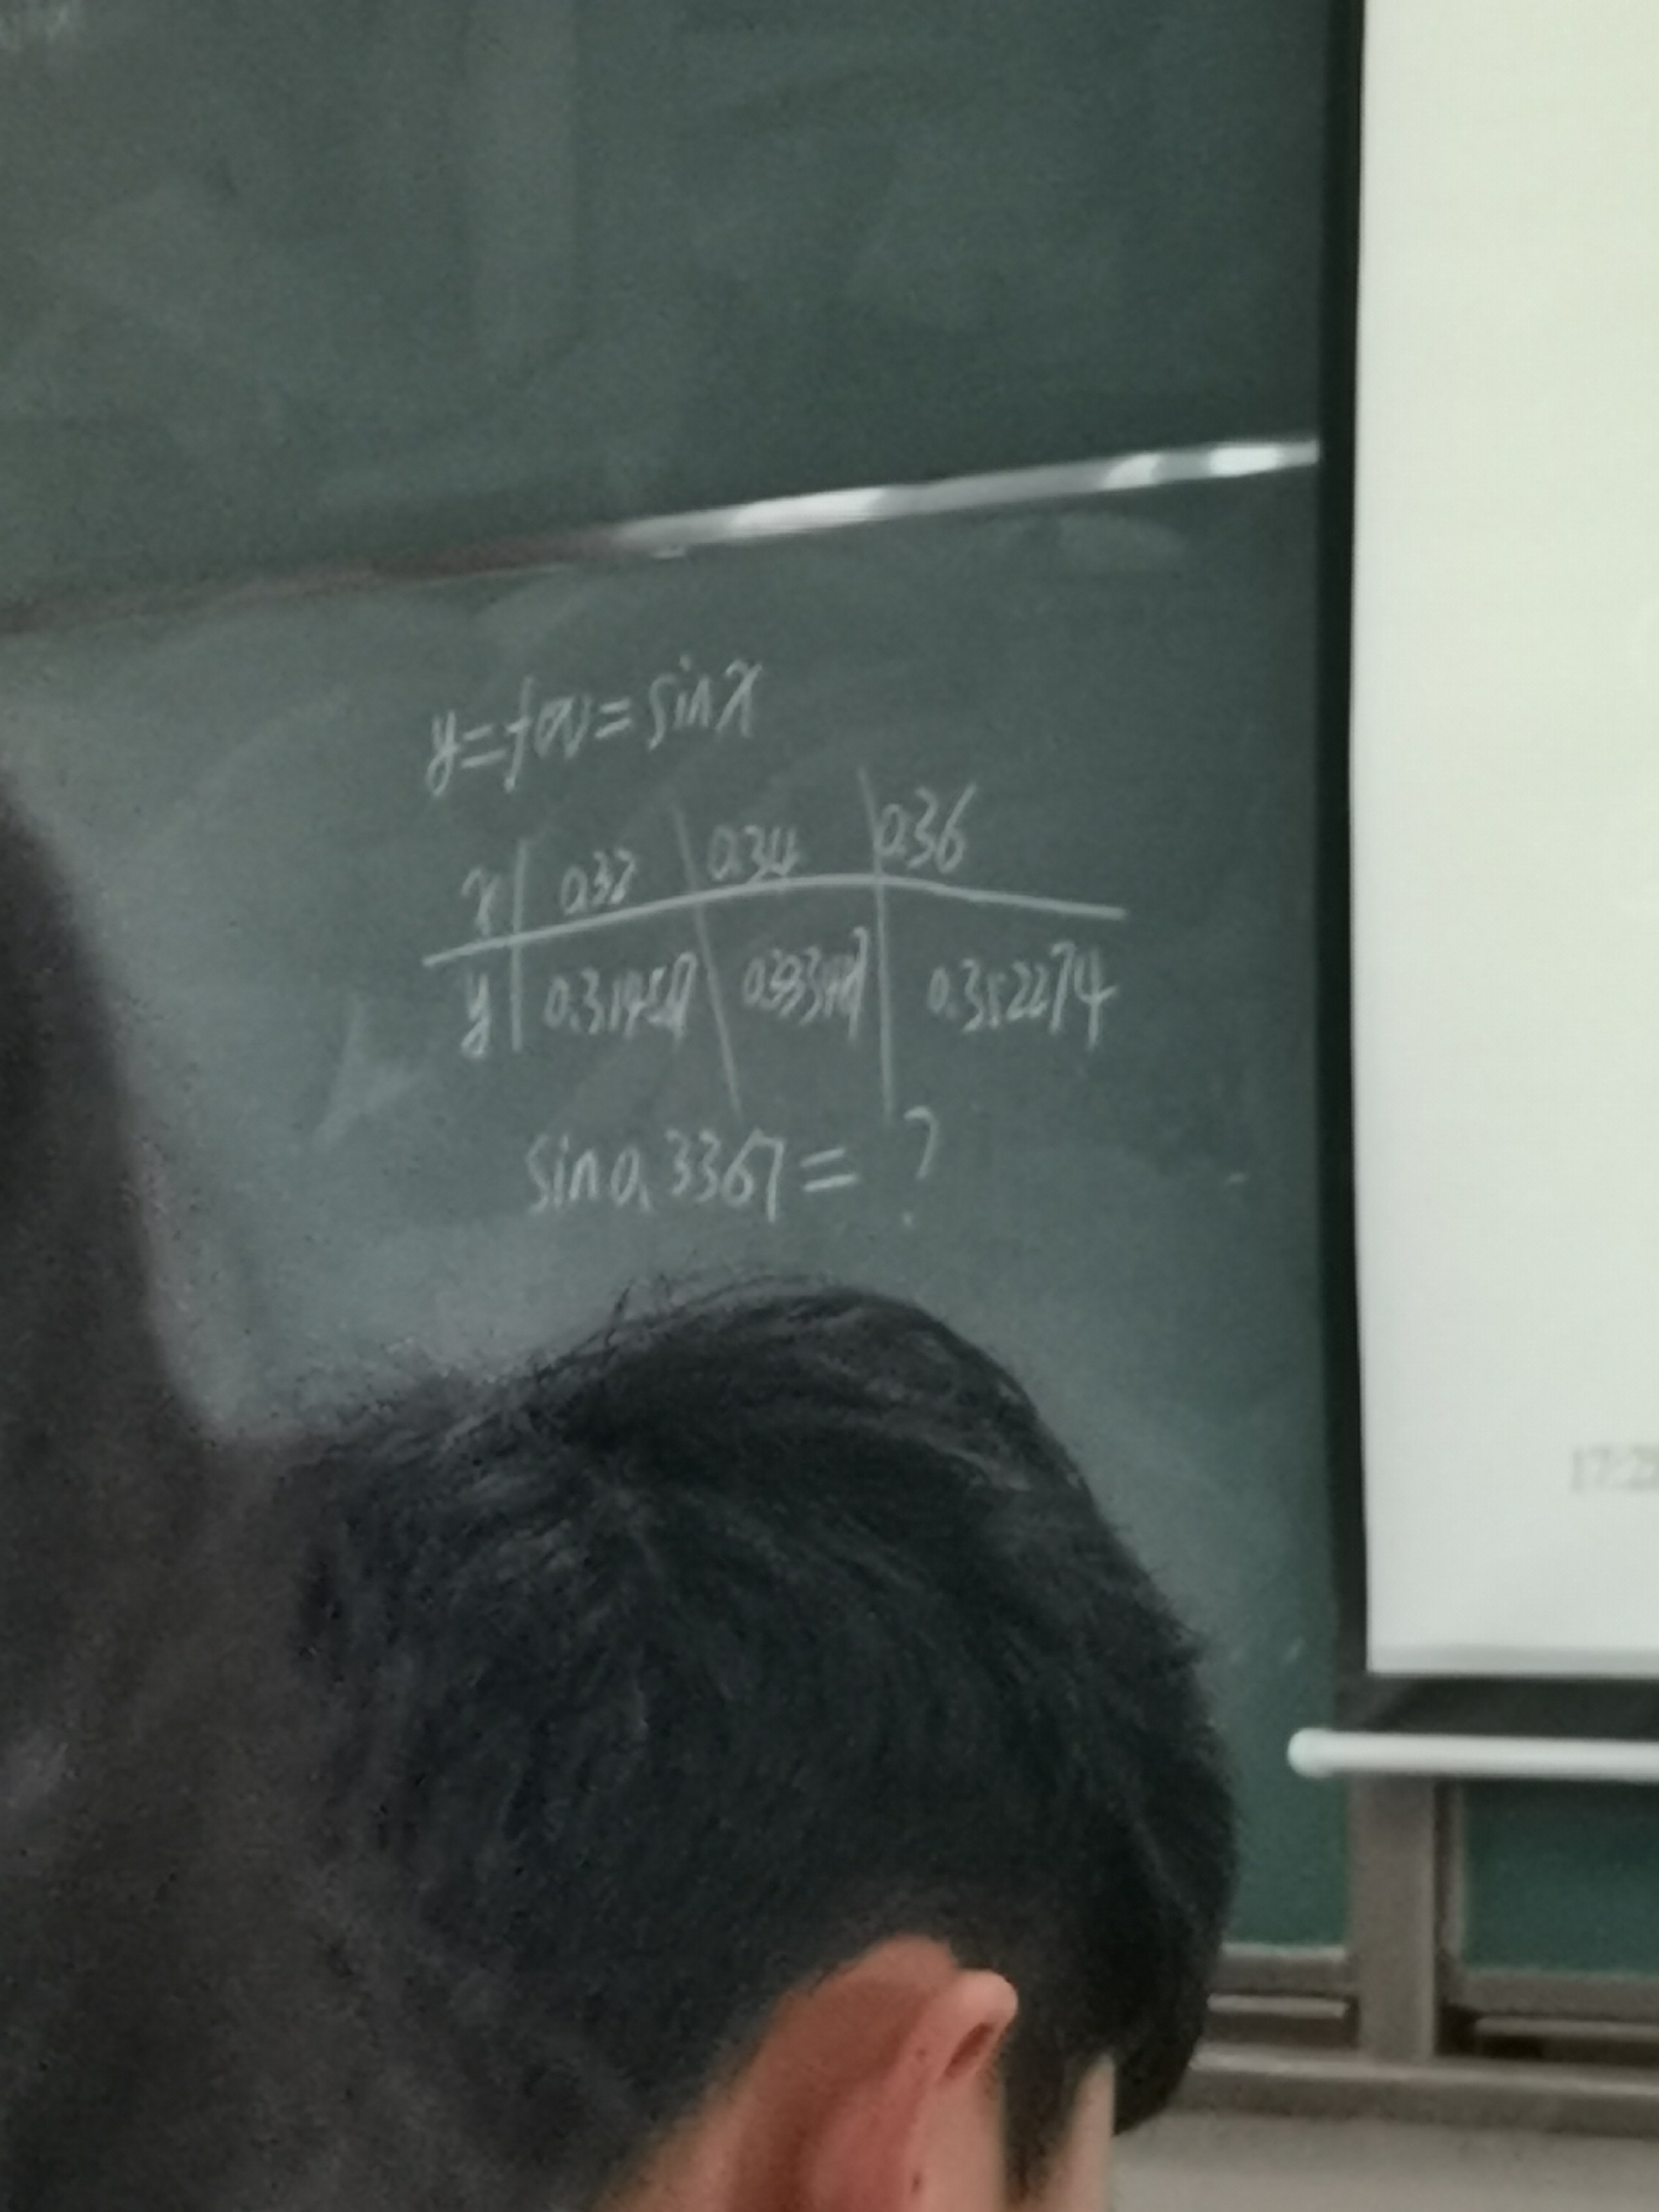 y=f(x)=sinx
x 0.32 0.34 0.36
y 0.314567 0.333487 0.352274
sin0.3367=?
17:28